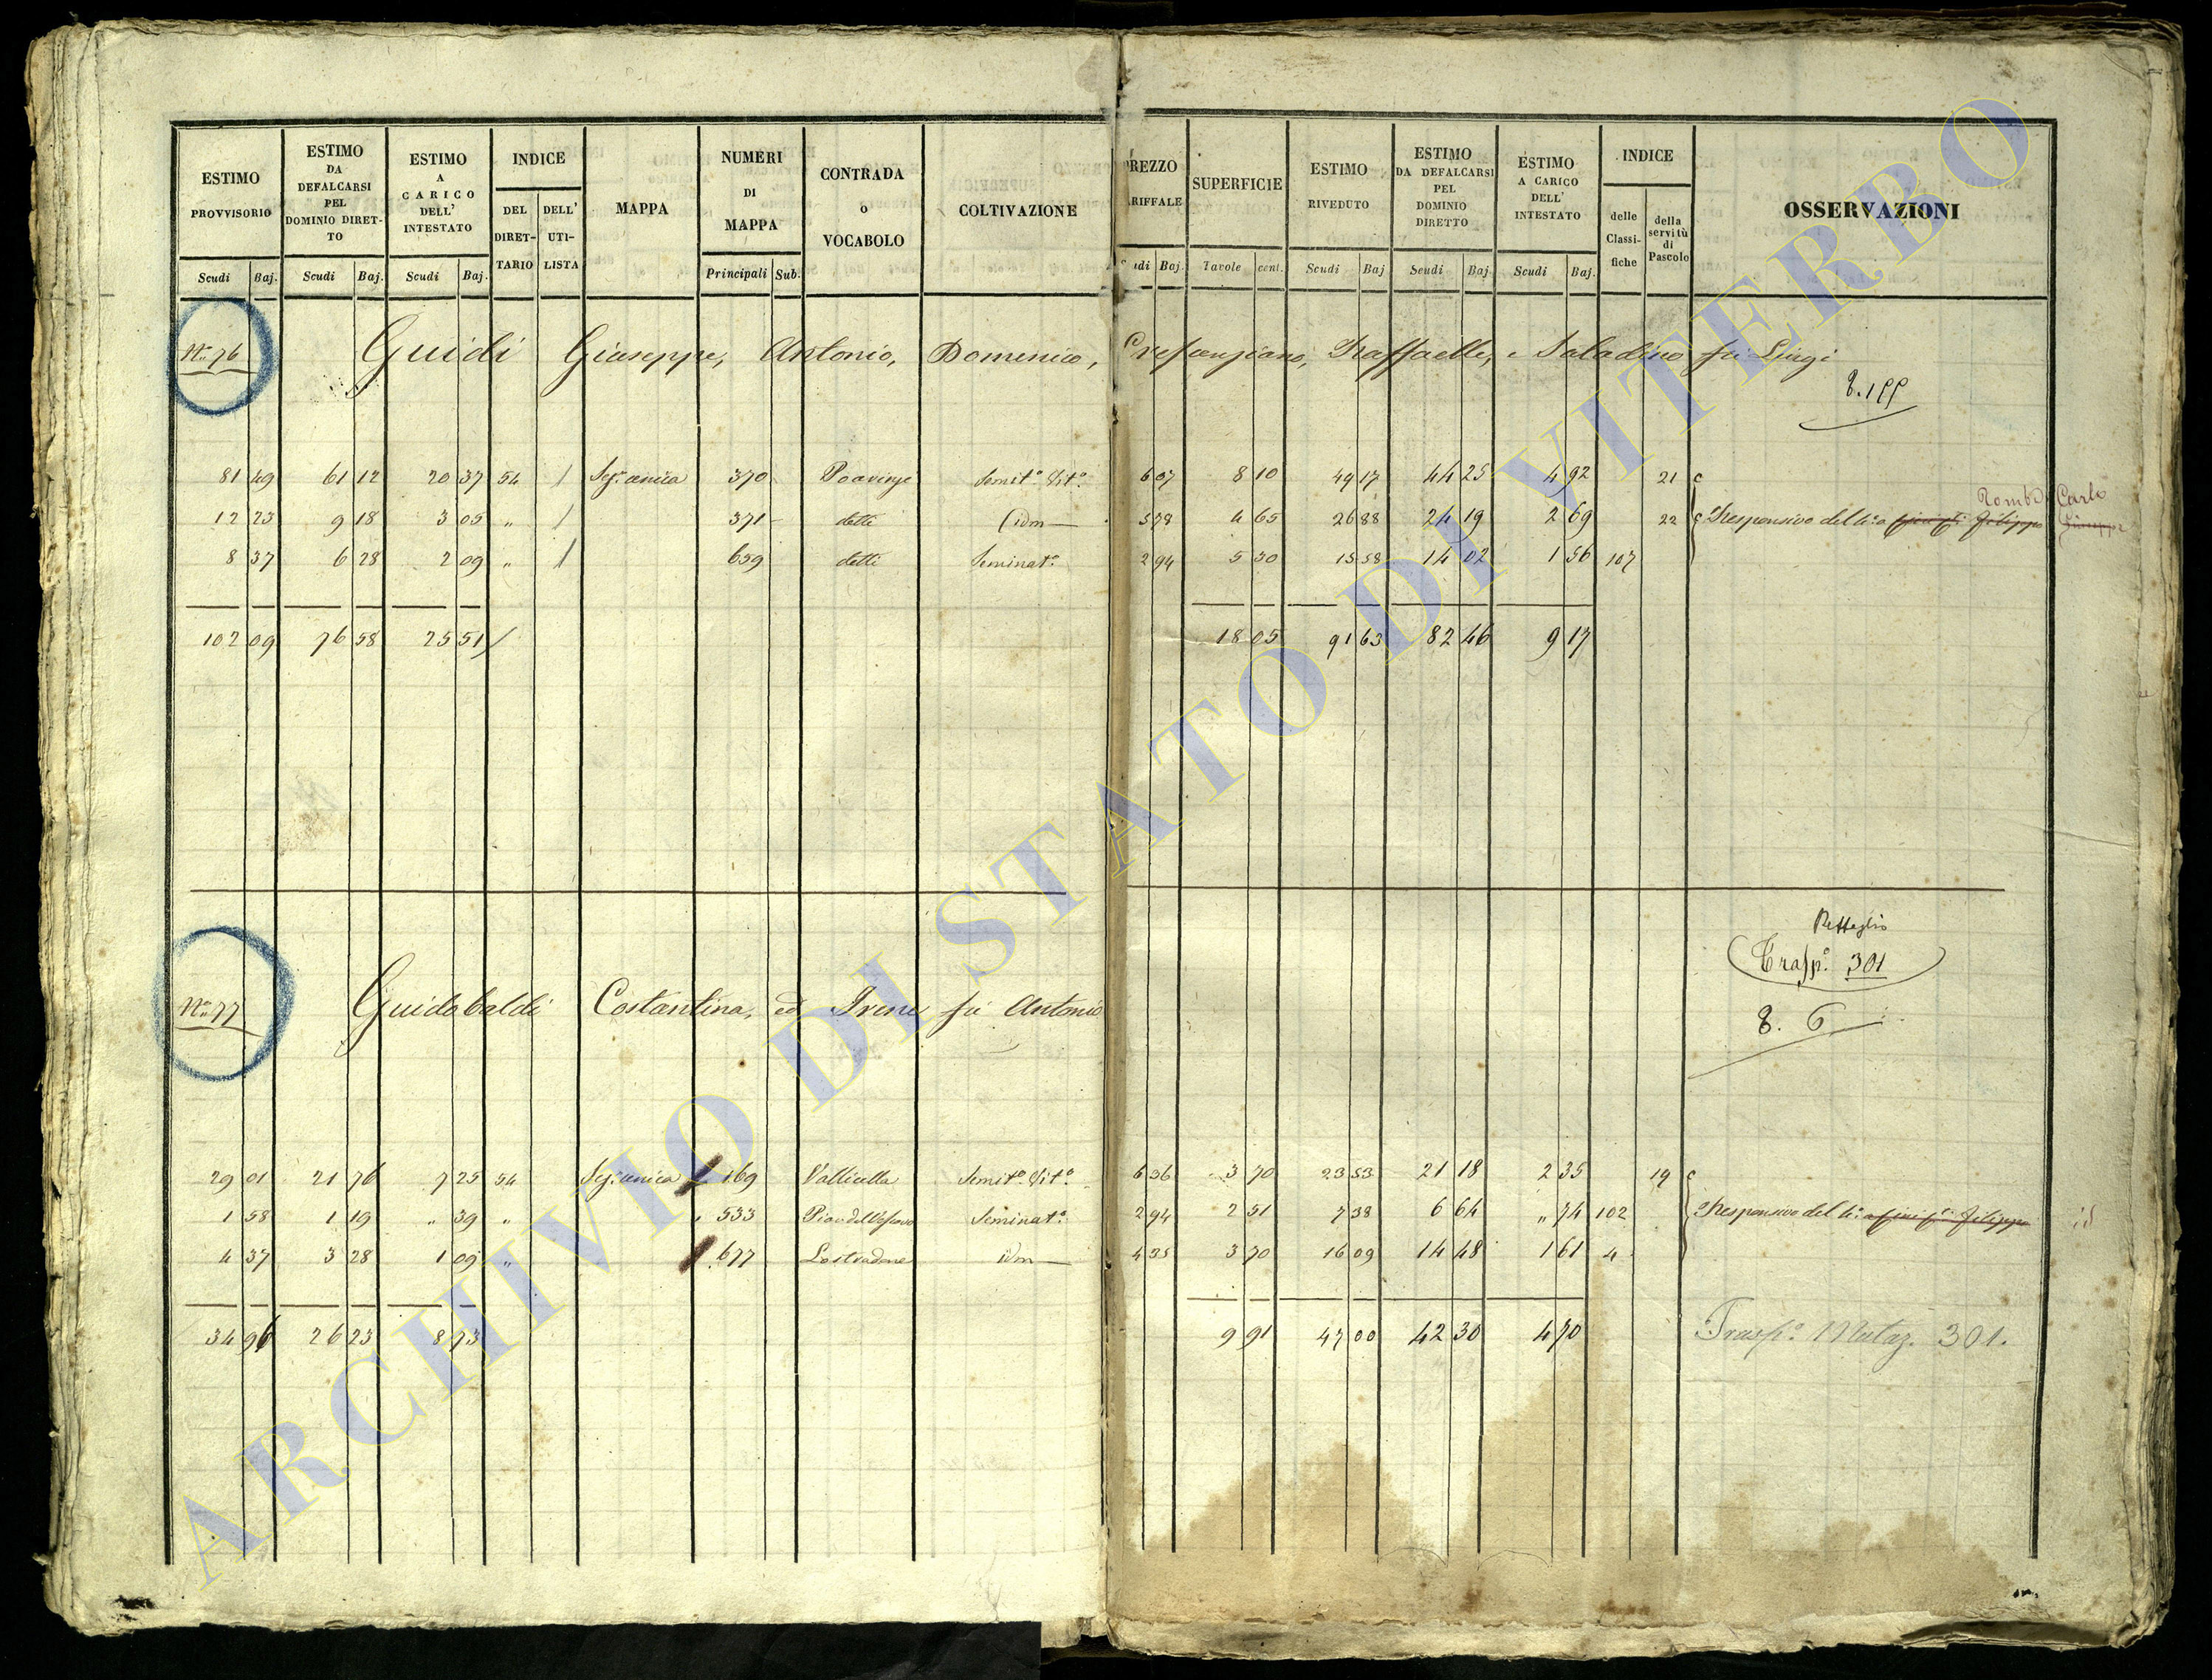 ESTIMO PROVVISORIO | ESTIMO DA DEFALCARSI PEL DOMINIO DIRETTO | ESTIMO A CARICO DELL' INTESTATO | INDICE | MAPPA | NUMERI DI MAPPA | CONTRADA o VOCABOLO | COLTIVAZIONE | PREZZO TARIFFALE | SUPERFICIE | ESTIMO RIVEDUTO | ESTIMO DA DEFALCARSI PEL DOMINIO DIRETTO | ESTIMO A CARICO DELL' INTESTATO | INDICE | OSSERVAZIONI
DEL DIRETTARIO | DELL' UTILISTA | delle Classifiche | della servitù di Pascolo
Scudi | Baj. | Scudi | Baj. | Scudi | Baj. | Principali | Sub. | Scudi | Baj. | Tavole | cent. | Scudi | Baj | Scudi | Baj | Scudi | Baj.
N.° 76 Guidi Giuseppe, Antonio, Domenico, Crescenziano, Raffaelle, e Saladino fu Luigi
81 49 | 61 12 | 20 37 | 54 | / | Sez.e unica | 370 | Seminat.o Vit.o | 6 07 | 8 10 | 49 17 | 44 25 | 4 92 | 21
Carlo
12 23 | 9 18 | 3 05 | " | / | 371 | detti | Idm | 5 78 | 4 65 | 26 88 | 24 19 | 2 69 | 22 | Responsivo del 4.o a Filippo
8 37 | 6 28 | 2 09 | " | / | 659 | detti | Seminat.o | 2 94 | 5 30 | 15 58 | 14 02 | 1 56 | 107
102 09 | 76 58 | 25 51 / | 18 05 | 91 63 | 82 46 | 9 17
Trasp.o 301
8. 6
N.° 77 Guidobaldi Costantina, ed Irene fu Antonio
29 01 | 21 76 | 7 25 | 54 | Sez.e unica | 169 | Vallicella | Semit.o Vit.o | 6 36 | 3 70 | 23 53 | 21 18 | 2 35 | 19
1 58 | 1 19 | " 39 | " | 533 | Pian del Vescovo | Seminat.o | 2 94 | 2 51 | 7 38 | 6 64 | " 74 | 102 | Responsivo del 4.o a Filippo id
4 37 | 3 28 | 1 09 | " | 677 | Lostradone | idm | 4 35 | 3 70 | 16 09 | 14 48 | 1 61 | 4
34 96 | 26 23 | 8 73 | 9 91 | 47 00 | 42 30 | 4 70 | Trasp.o 301.
ARCHIVIO DI STATO DI VITERBO